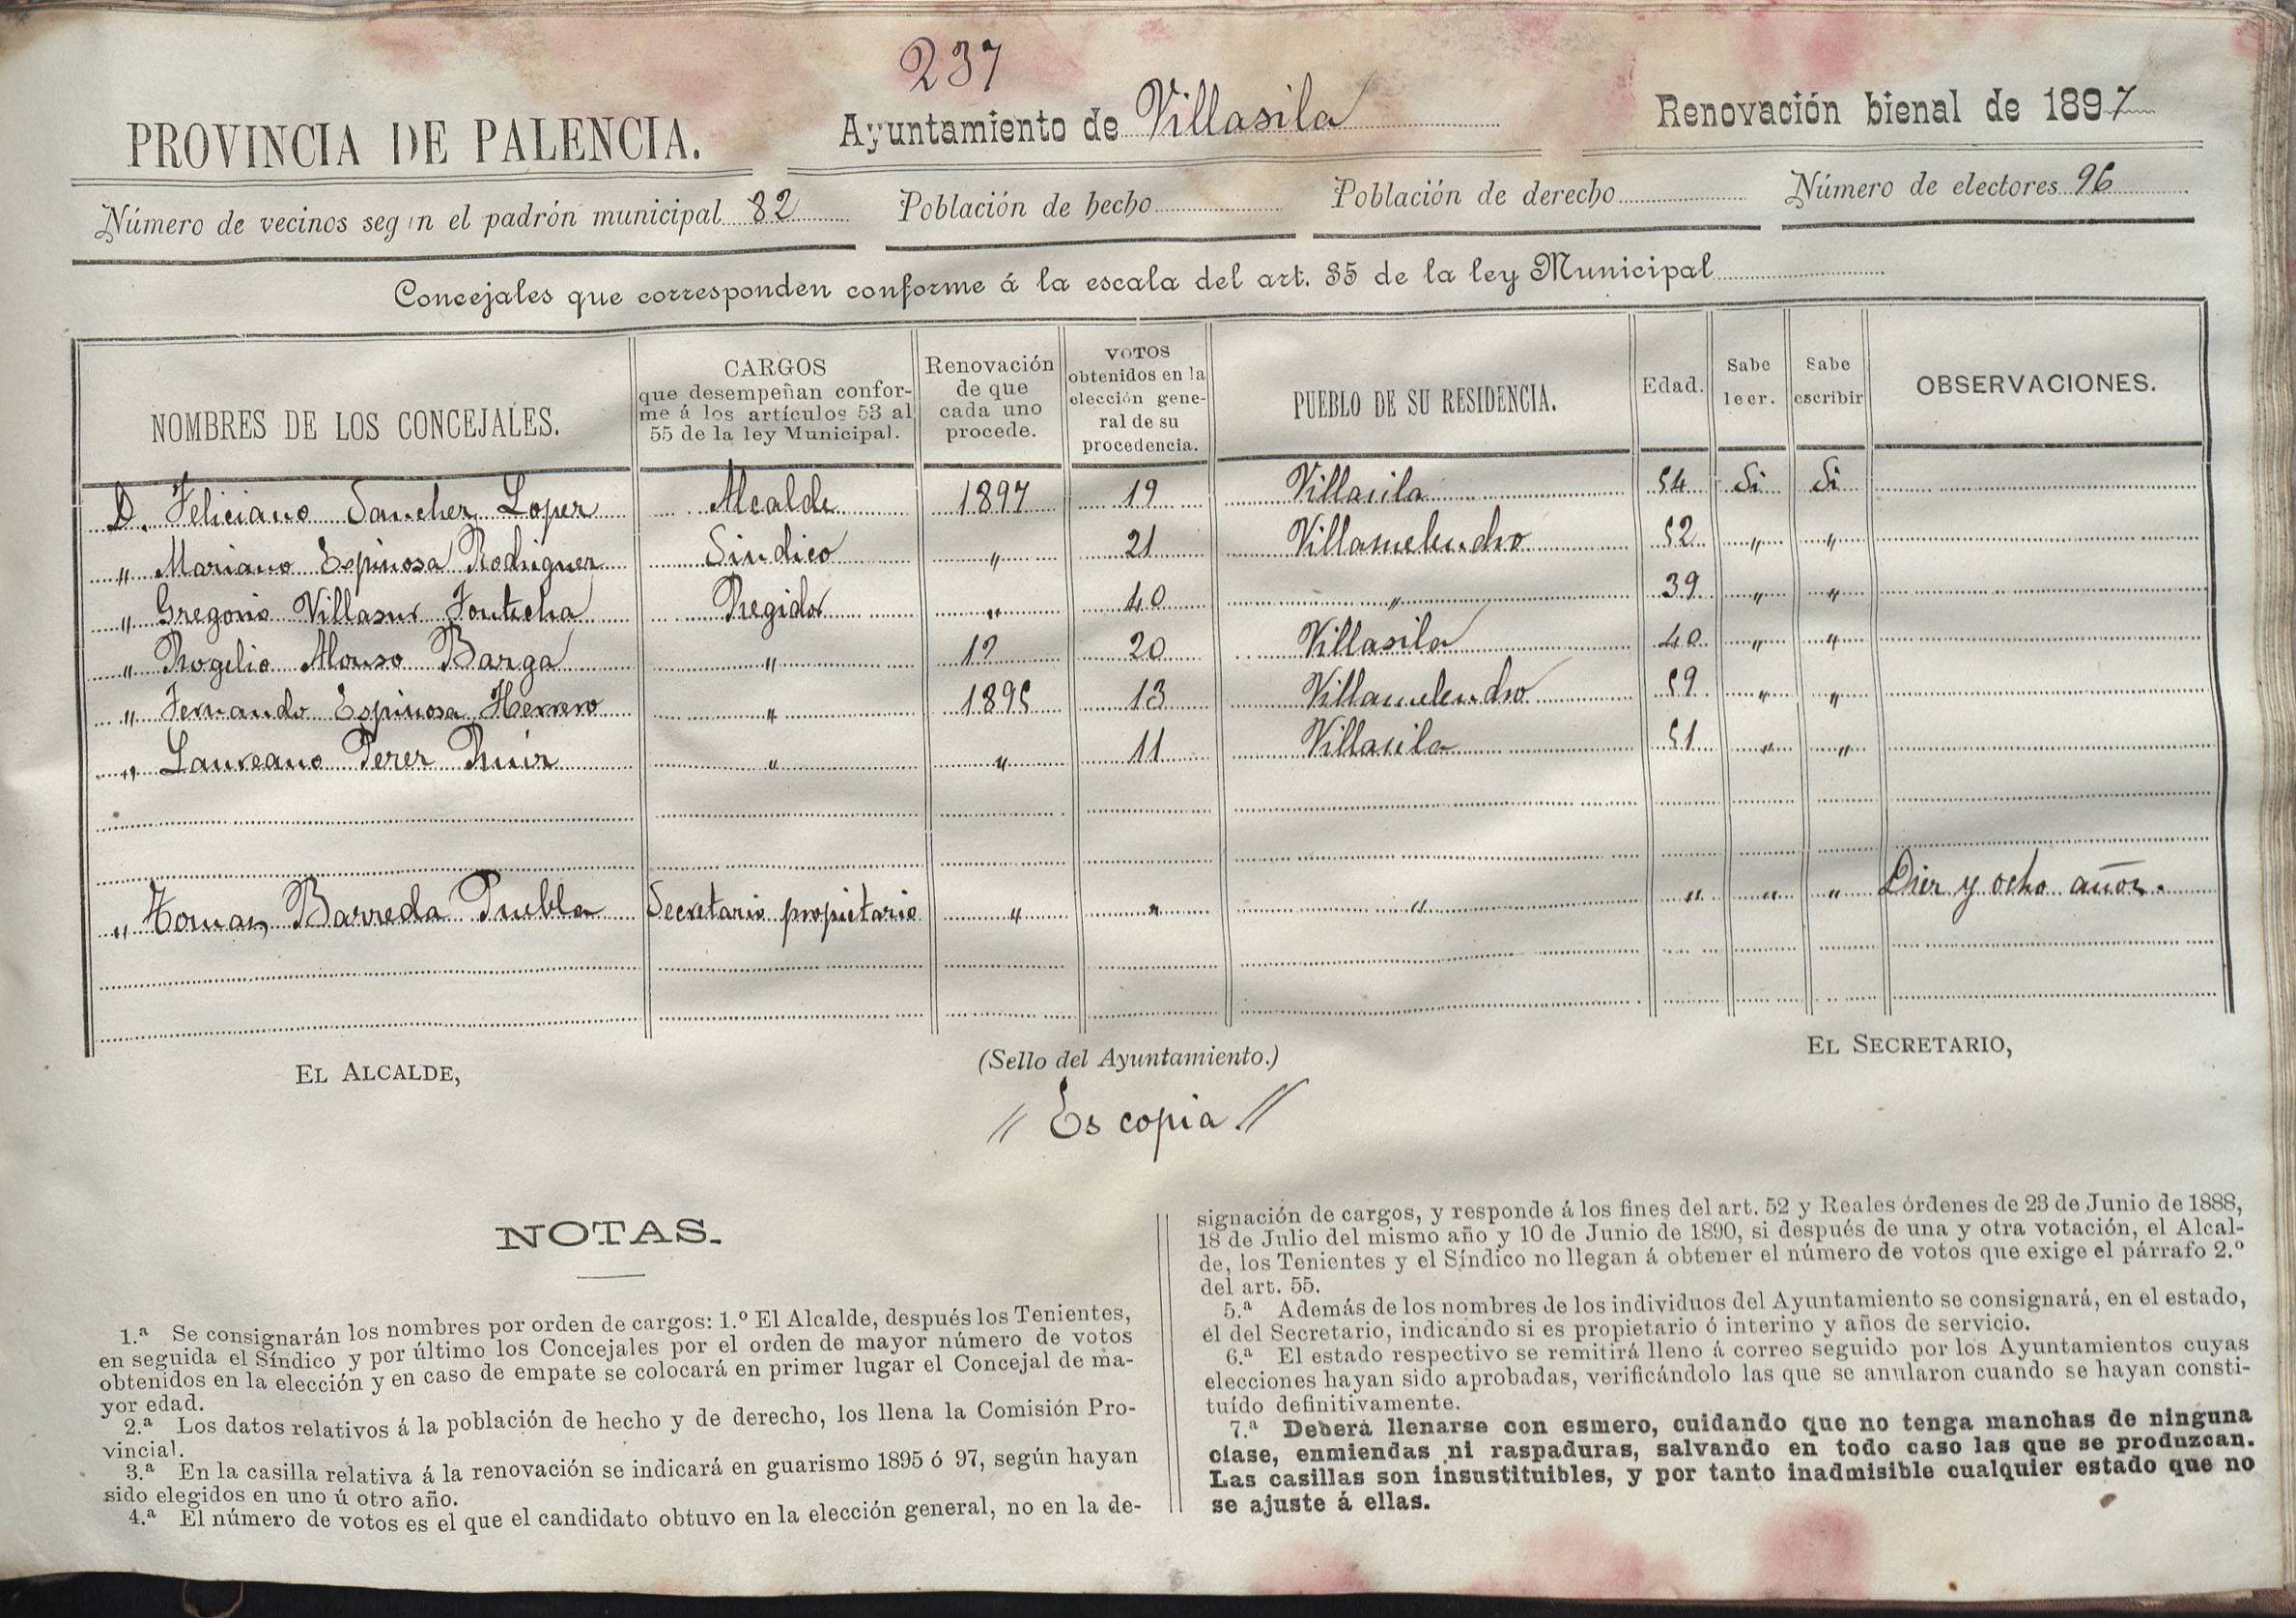 237
PROVINCIA DE PALENCIA. Ayuntamiento de Villasila Renovación bienal de 1897
Número de vecinos según el padrón municipal 82 Población de hecho Población de derecho Número de electores 96
Concejales que corresponden conforme á la escala del art. 35 de la ley Municipal
NOMBRES DE LOS CONCEJALES. CARGOS que desempeñan confor-me á los artículos 53 al 55 de la ley Municipal. Renovación de que cada uno procede. VOTOS obtenidos en la elección gene-ral de su procedencia. PUEBLO DE SU RESIDENCIA. Edad. Sabe leer. Sabe escribir OBSERVACIONES.
D. Feliciano Sanchez Lopez Alcalde 1897 19 Villasila 54 Si Si
" Mariano Espinosa Rodriguez Sindico " 21 Villamelendro 52 " "
" Gregorio Villasur Fontecha Regidor " 40 " 39 " "
" Rogelio Alonso Barga " 12 20 Villasila 40 " "
" Fernando Espinosa Herrero " 1895 13 Villamelendro 59 " "
" Laureano Perez Ruiz " " 11 Villasila 51 " "
" Tomas Barreda Puebla Secretario propietario " " " " " " Diez y ocho años.
EL ALCALDE, (Sello del Ayuntamiento.) EL SECRETARIO,
// Es copia //
NOTAS.
1.ª Se consignarán los nombres por orden de cargos: 1.º El Alcalde, después los Tenientes,
en seguida el Síndico y por último los Concejales por el orden de mayor número de votos
obtenidos en la elección y en caso de empate se colocará en primer lugar el Concejal de ma-
yor edad.
2.ª Los datos relativos á la población de hecho y de derecho, los llena la Comisión Pro-
vincial.
3.ª En la casilla relativa á la renovación se indicará en guarismo 1895 ó 97, según hayan
sido elegidos en uno ú otro año.
4.ª El número de votos es el que el candidato obtuvo en la elección general, no en la de-
signación de cargos, y responde á los fines del art. 52 y Reales órdenes de 23 de Junio de 1888,
18 de Julio del mismo año y 10 de Junio de 1890, si después de una y otra votación, el Alcal-
de, los Tenientes y el Síndico no llegan á obtener el número de votos que exige el párrafo 2.º
del art. 55.
5.ª Además de los nombres de los individuos del Ayuntamiento se consignará, en el estado,
él del Secretario, indicando si es propietario ó interino y años de servicio.
6.ª El estado respectivo se remitirá lleno á correo seguido por los Ayuntamientos cuyas
elecciones hayan sido aprobadas, verificándolo las que se anularon cuando se hayan consti-
tuído definitivamente.
7.ª Deberá llenarse con esmero, cuidando que no tenga manchas de ninguna
clase, enmiendas ni raspaduras, salvando en todo caso las que se produzcan.
Las casillas son insustituibles, y por tanto inadmisible cualquier estado que no
se ajuste á ellas.